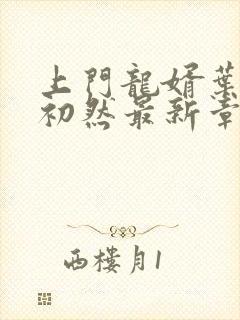 上門龍婿葉
初然最新章
西樓月1